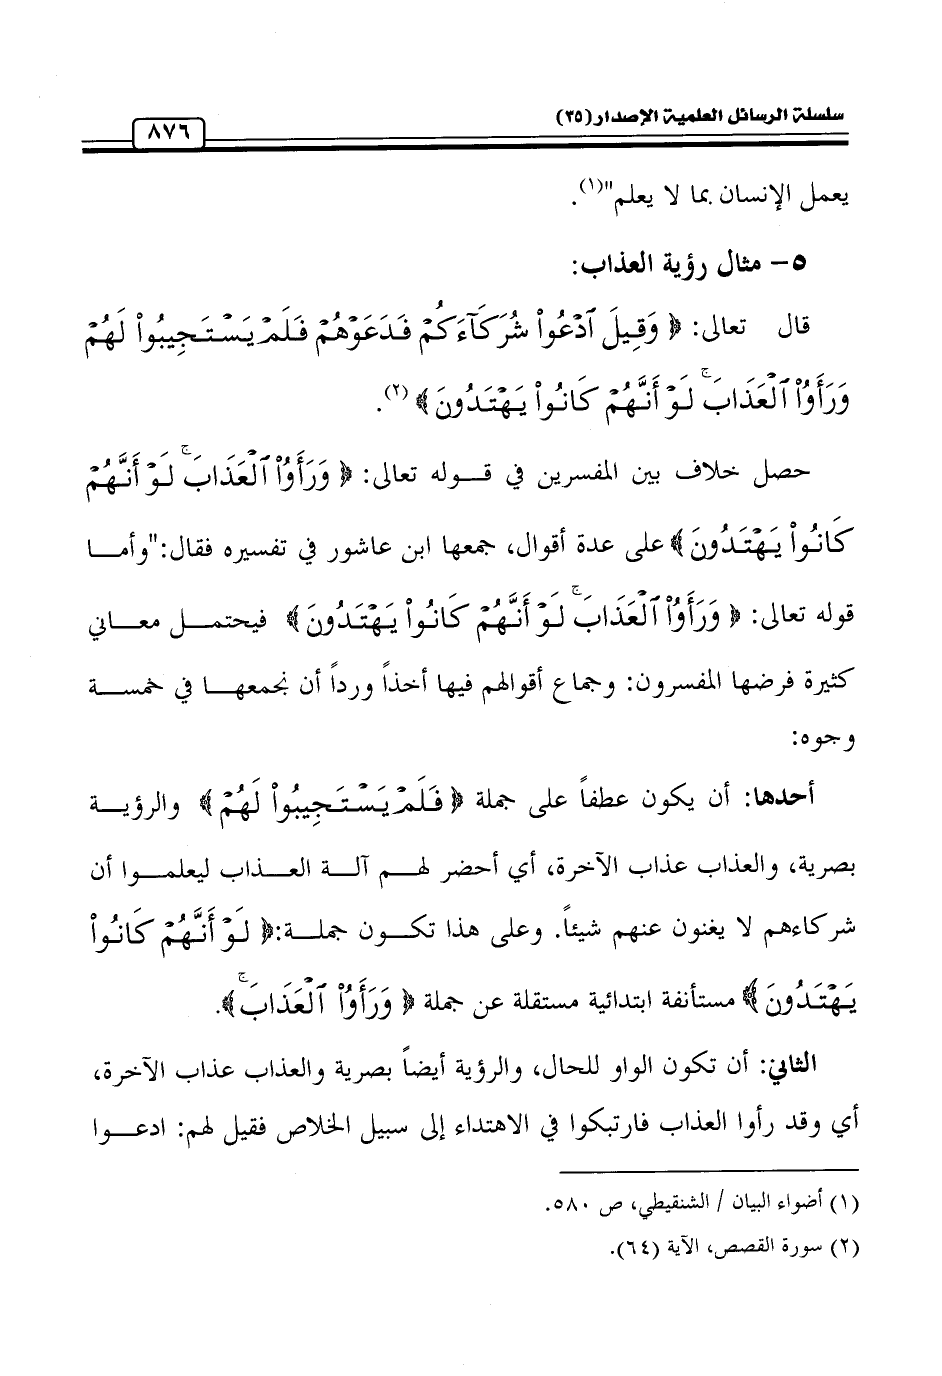 سلسلة الرسائل العلمية الإصدار (٣٥)
٨٧٦
يعمل الإنسان بما لا يعلم"(١).
٥- مثال رؤية العذاب:
قال تعالى: ﴿ وَقِيلَ ٱدْعُوا۟ شُرَكَآءَكُمْ فَدَعَوْهُمْ فَلَمْ يَسْتَجِيبُوا۟ لَهُمْ
وَرَأَوُا۟ ٱلْعَذَابَ ۚ لَوْ أَنَّهُمْ كَانُوا۟ يَهْتَدُونَ ﴾(٢).
حصل خلاف بين المفسرين في قوله تعالى: ﴿ وَرَأَوُا۟ ٱلْعَذَابَ ۚ لَوْ أَنَّهُمْ
كَانُوا۟ يَهْتَدُونَ ﴾ على عدة أقوال، جمعها ابن عاشور في تفسيره فقال:"وأما
قوله تعالى: ﴿ وَرَأَوُا۟ ٱلْعَذَابَ ۚ لَوْ أَنَّهُمْ كَانُوا۟ يَهْتَدُونَ ﴾ فيحتمل معاني
كثيرة فرضها المفسرون: وجماع أقوالهم فيها أخذاً ورداً أن نجمعها في خمسة
وجوه:
أحدها: أن يكون عطفاً على جملة ﴿ فَلَمْ يَسْتَجِيبُوا۟ لَهُمْ ﴾ والرؤية
بصرية، والعذاب عذاب الآخرة، أي أحضر لهم آلة العذاب ليعلموا أن
شركاءهم لا يغنون عنهم شيئاً. وعلى هذا تكون جملة:﴿ لَوْ أَنَّهُمْ كَانُوا۟
يَهْتَدُونَ ﴾ مستأنفة ابتدائية مستقلة عن جملة ﴿ وَرَأَوُا۟ ٱلْعَذَابَ ۚ ﴾.
الثاني: أن تكون الواو للحال، والرؤية أيضاً بصرية والعذاب عذاب الآخرة،
أي وقد رأوا العذاب فارتبكوا في الاهتداء إلى سبيل الخلاص فقيل لهم: ادعوا
(١) أضواء البيان / الشنقيطي، ص ٥٨٠.
(٢) سورة القصص، الآية (٦٤).